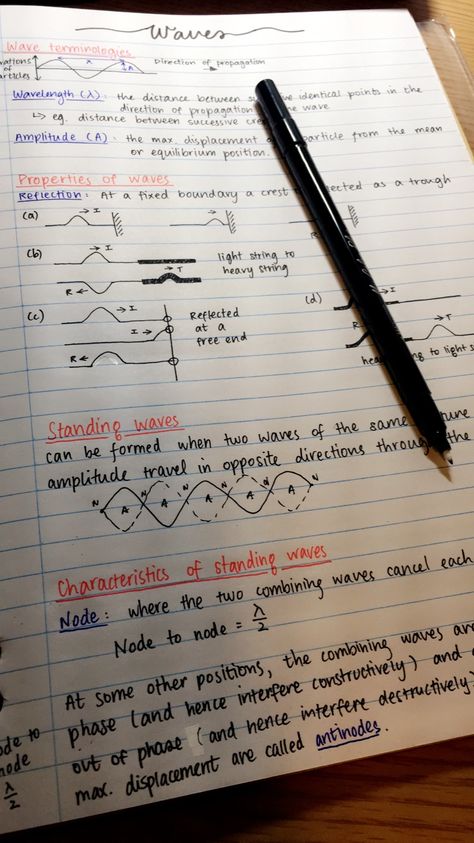 Waves
Wave terminologies
Direction of propagation
Wavelength (λ) : the distance between identical points in the
direction of propagation wave
↳ eg. distance between successive
Amplitude (A) : the max. displacement particle from the mean
or equilibrium position.
Properties of waves
Reflection : At a fixed boundary a crest as a trough
(a) → I
(b) → I light string to
R ← → T heavy string
(c) → I Reflected (d)
I → at a R → T
R ← free end to light
Standing waves
can be formed when two waves of the same
amplitude travel in opposite directions through the
N A N A N A N A N A N
Characteristics of standing waves
Node : where the two combining waves cancel each
Node to node = λ/2
At some other positions, the combining waves
phase (and hence interfere constructively) and
out of phase (and hence interfere destructively)
max. displacement are called antinodes.
to
node
λ/2